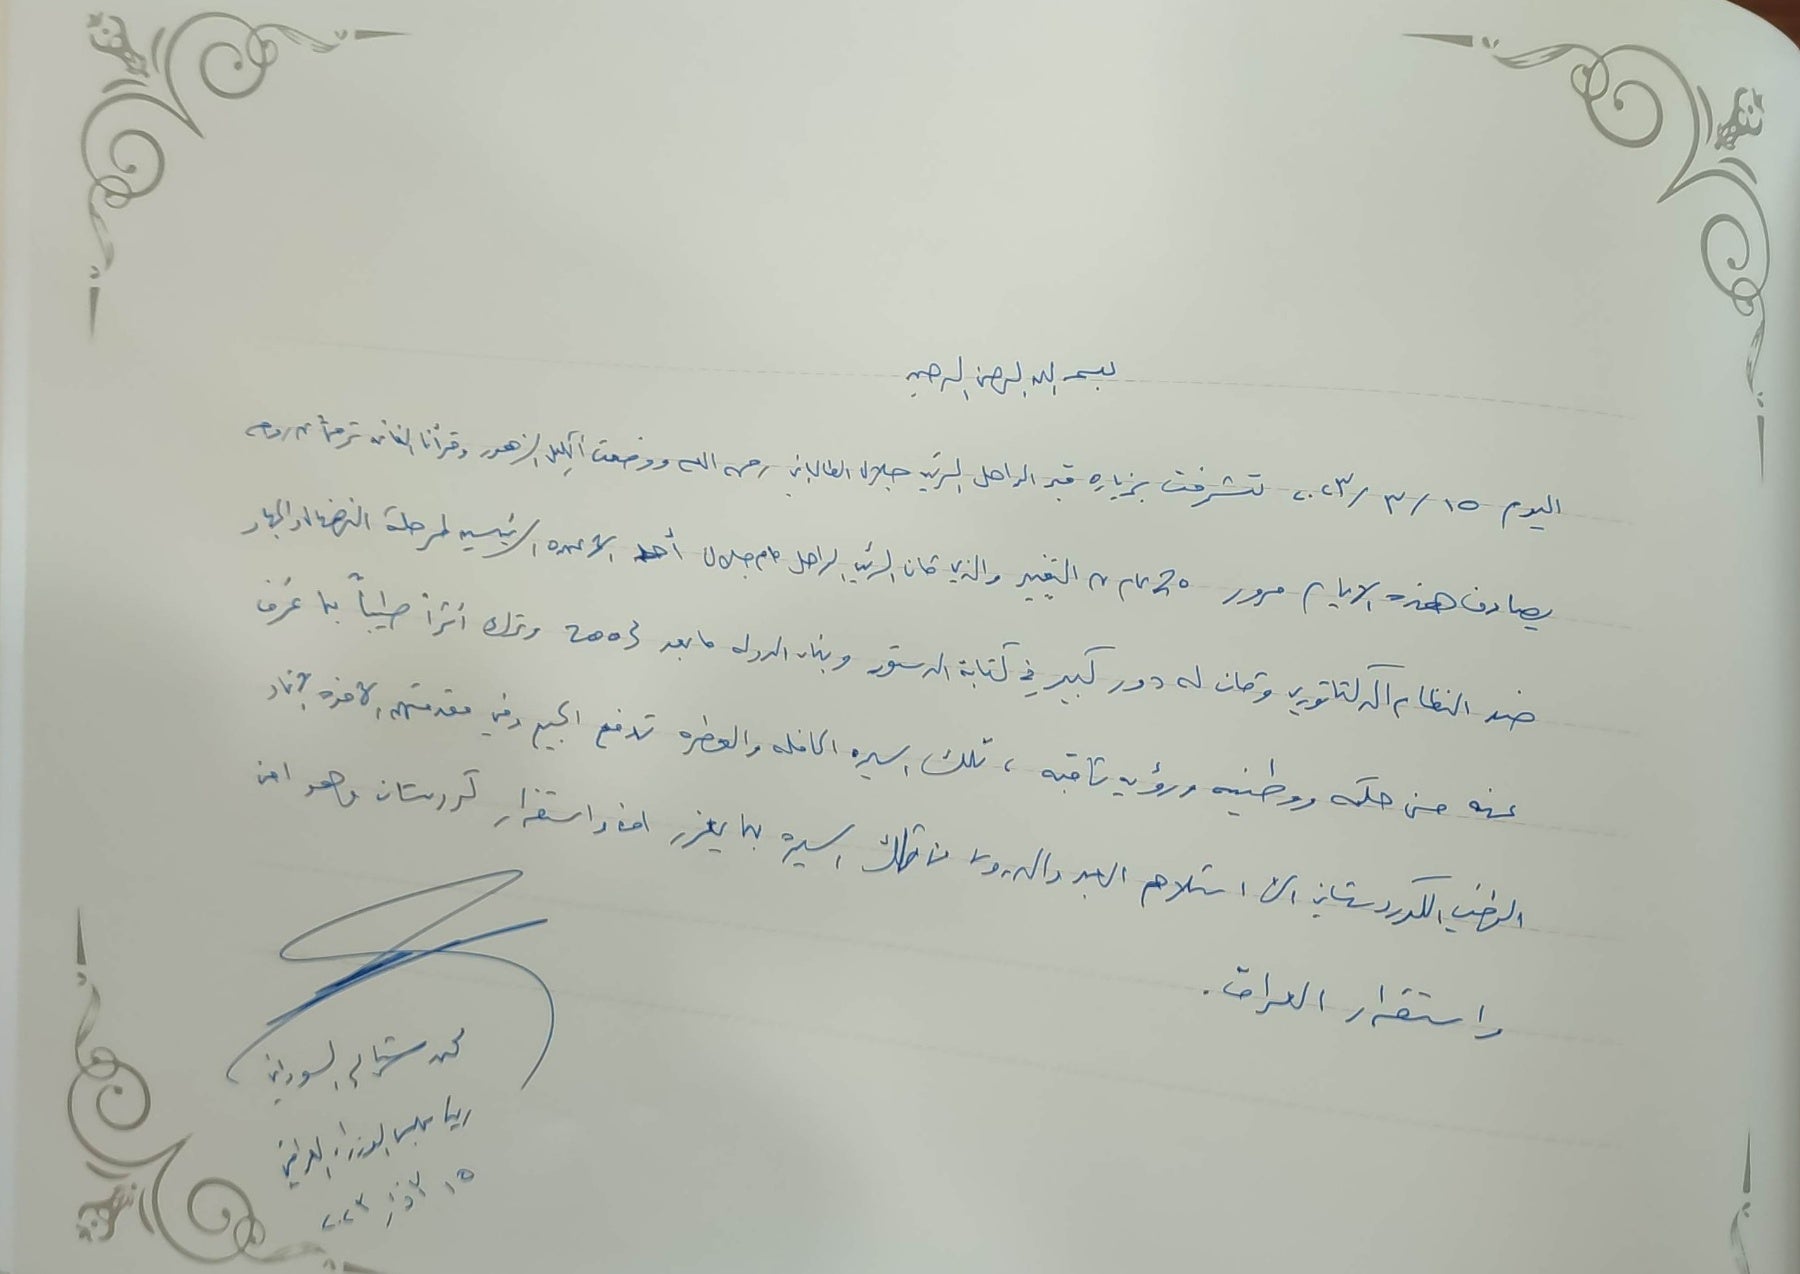 بسم الله الرحمن الرحيم
اليوم ١٥/٣/٢٠٢٣ تشرفت بزياره قبر الراحل الرئيس جلال الطالباني رحمه الله ووضعت أكليل الزهور وقرأنا الفاتحه ترحماً على روحه
يصادف هذه الايام مرور 20 عام على التغيير والذي كان الرئيس الراحل مام جلال أحد الأعمده الرئيسيه لمرحلة النضال والجهاد
ضد النظام الدكتاتوري وكان له دور كبير في كتابة الدستور وبناء الدوله ما بعد 2003 وترك أثراً طيباً بما عُرف
عنه من حكمه ووطنيه ورؤيه ثاقبه ، تلك السيره الحافله والعطره تدفع الجميع وفي مقدمتهم الاخوه الاتحاد
الوطني الكوردستاني الى استلهام العبر والدروس من تلك السيره بما يعزز امن واستقرار كردستان وهو امن
واستقرار العراق .
محمد شياع السوداني
رئيس مجلس الوزراء العراقي
١٥ آذار ٢٠٢٣